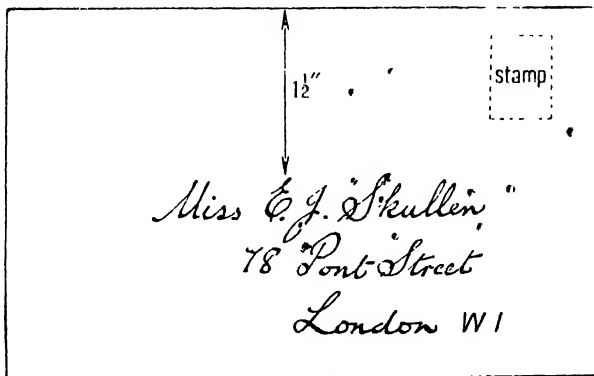 1½"
stamp
Miss E. J. "Skullen"
78 "Pont" Street
London W1